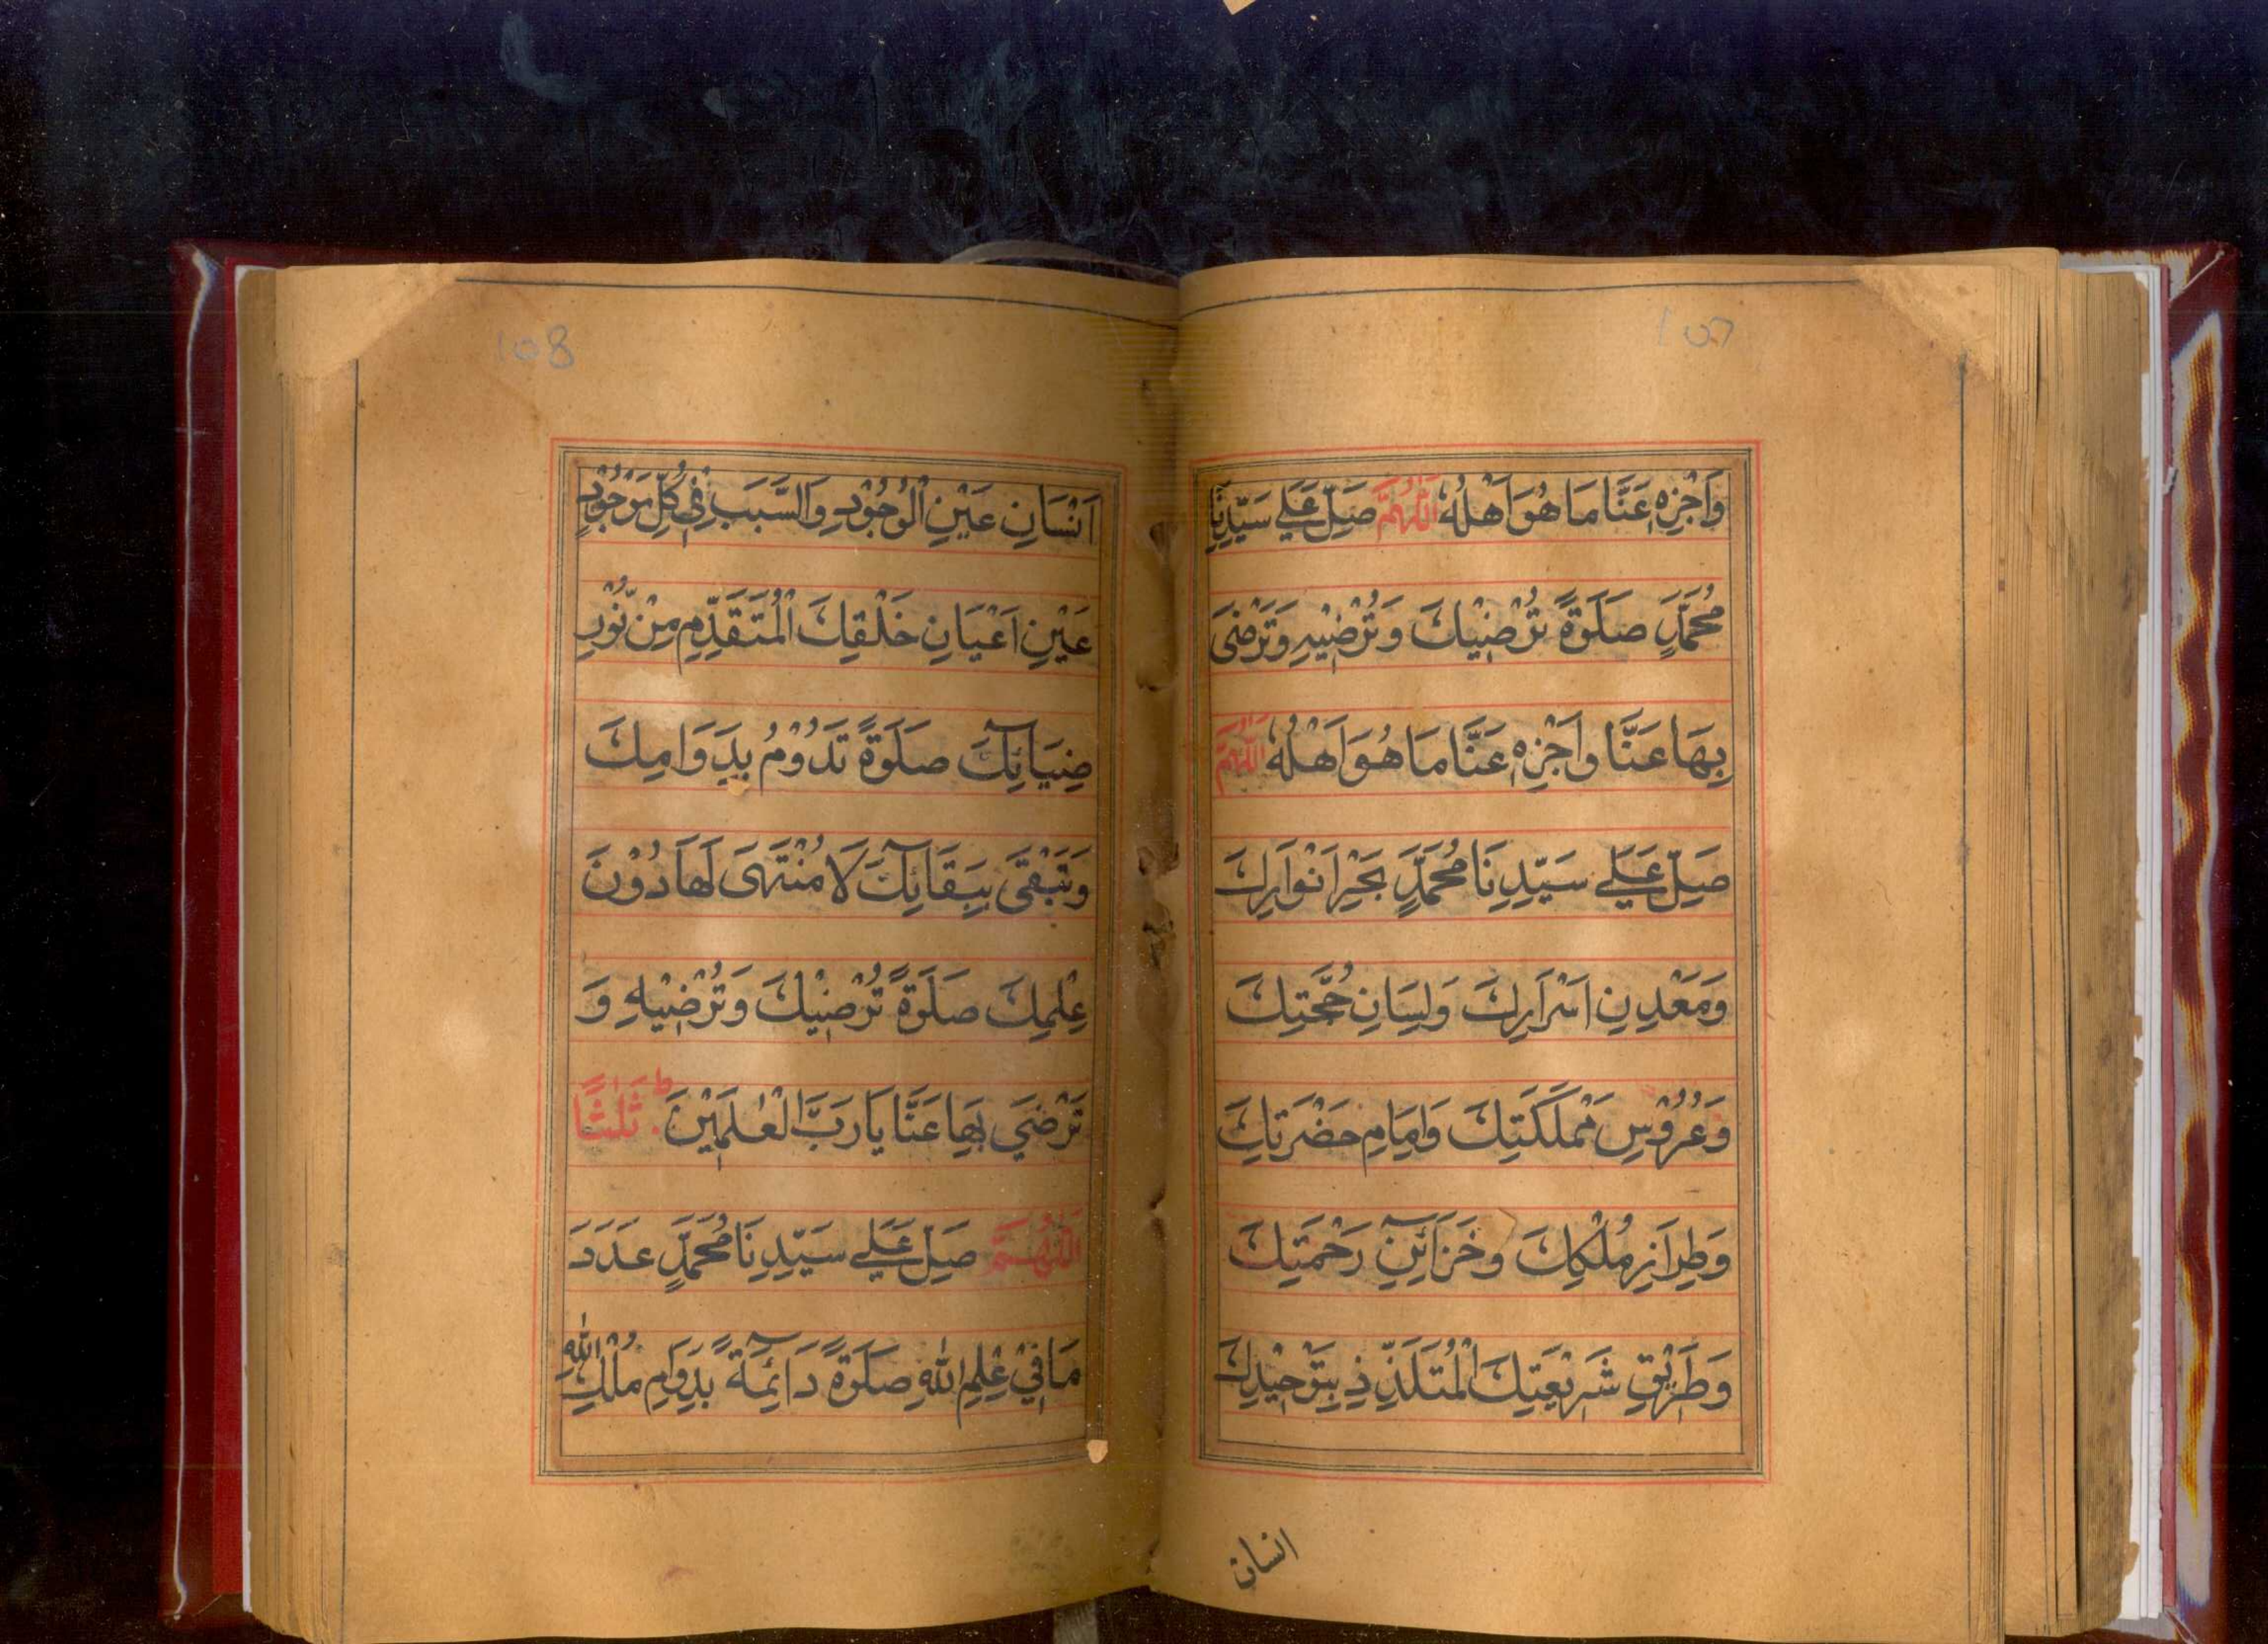 107
وَاَجْزِهٖ عَنَّا مَا هُوَ اَهْلُهٗ اَللّٰهُمَّ صَلِّ عَلٰى سَيِّدِنَا
مُحَمَّدٍ صَلٰوةً تُرْضِيْكَ وَتُرْضِيْهِ وَتَرْضٰى
بِهَا عَنَّا وَاَجْزِهٖ عَنَّا مَا هُوَ اَهْلُهٗ اَللّٰهُمَّ
صَلِّ عَلٰى سَيِّدِنَا مُحَمَّدٍ بَحْرِ اَنْوَارِكَ
وَمَعْدِنِ اَسْرَارِكَ وَلِسَانِ حُجَّتِكَ
وَعُرُوْسِ مَمْلَكَتِكَ وَاِمَامِ حَضْرَتِكَ
وَطِرَازِ مُلْكِكَ وَخَزَآئِنِ رَحْمَتِكَ
وَطَرِيْقِ شَرِيْعَتِكَ الْمُتَلَذِّذِ بِتَوْحِيْدِكَ
انسان
108
اَنْسَانِ عَيْنِ الْوُجُوْدِ وَالسَّبَبِ فِيْ كُلِّ مَوْجُوْدٍ
عَيْنِ اَعْيَانِ خَلْقِكَ الْمُتَقَدِّمِ مِنْ نُّوْرِ
ضِيَآئِكَ صَلٰوةً تَدُوْمُ بِدَوَامِكَ
وَتَبْقٰى بِبَقَآئِكَ لَا مُنْتَهٰى لَهَا دُوْنَ
عِلْمِكَ صَلٰوةً تُرْضِيْكَ وَتُرْضِيْهِ وَ
تَرْضٰى بِهَا عَنَّا يَا رَبَّ الْعٰلَمِيْنَ ؕ ثَلٰثًا
اَللّٰهُمَّ صَلِّ عَلٰى سَيِّدِنَا مُحَمَّدٍ عَدَدَ
مَا فِيْ عِلْمِ اللّٰهِ صَلٰوةً دَآئِمَةً بِدَوَامِ مُلْكِ اللّٰهِ